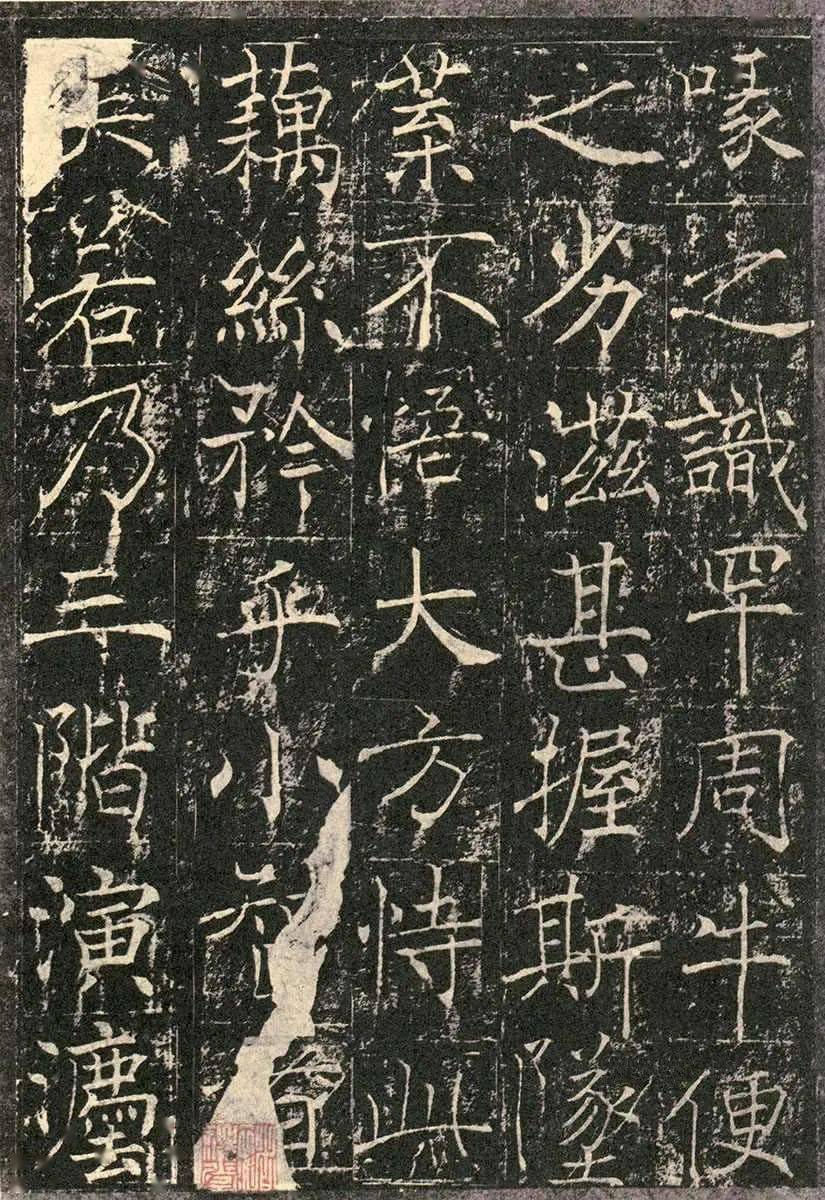 喙之識罕周牛便
之劣滋甚握斯墜
葉不悟大方恃此
藕絲矜乎小
矣若乃三階演灋